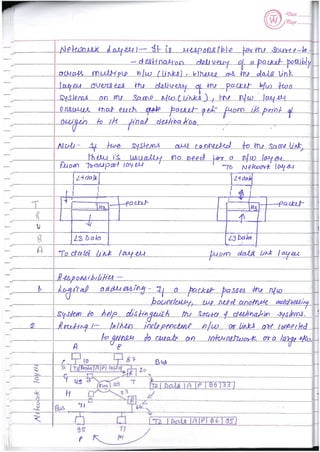 Network layer :- It is responsible for the source-to
- destination delivery of a packet possibly
across multiple n/w (links). Where as the data link
layer oversees the delivery of the packet b/w two
systems on the same n/w (links), the n/w layer
ensures that each packet gets from its point of
origin to its final destination.
Note - If two systems are connected to the same link,
there is usually no need for a n/w layer.
From Transport layer
To Network layer
L4 data
L4 data
H3
packet
H3
packet
L3 Data
L3 Data
To data link layer
from data link layer
Responsibilities -
1. Logical addressing - If a packet passes the n/w
boundary, we need another addressing
system to help distinguish the source & destination systems.
2. Routing :- When independent n/w or links are connected
together to create an internetwork or a large n/w
Network layer
A
10
87
Bus
20
G
T
H
71
Bus
T2 Data A P
T2 Data A P
95
77
P
M